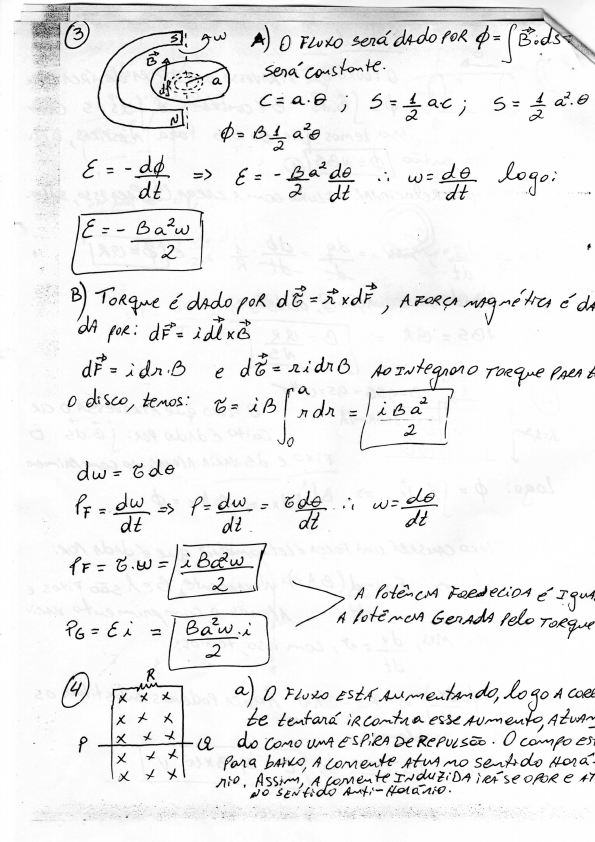 ③ S ω A) O FLUXO SERÁ DADO POR ϕ = ∫B⃗·ds⃗
B⃗ ds⃗ a SERÁ CONSTANTE.
N C = a·θ , S = 1/2 aC ; S = 1/2 a²·θ
ϕ = B 1/2 a²θ
Ɛ = -dϕ/dt => Ɛ = -Ba²/2 dθ/dt ∴ ω = dθ/dt logo:
Ɛ = -Ba²ω/2
B) TORQUE É DADO POR dτ⃗ = r⃗ x dF⃗ , A FORÇA MAGNÉTICA É DA
DA POR: dF⃗ = idl⃗ x B⃗
dF⃗ = idr·B e dτ⃗ = ridrB AO INTEGRAR O TORQUE PARA
O disco, temos: τ = iB ∫₀ᵃ rdr = iBa²/2
dw = τdθ
P_F = dw/dt => P = dw/dt = τdθ/dt ∴ ω = dθ/dt
P_F = τ·ω = iBa²ω/2
A POTÊNCIA FORNECIDA É IGUA
P_G = Ɛi = Ba²ω/2·i A POTÊNCIA GERADA PELO TORQUE
④ R a) O FLUXO ESTÁ AUMENTANDO, LOGO A CORRE
x x x TE TENTARÁ IR CONTRA ESSE AUMENTO, ATUAN
x x x
P x x x Q DO COMO UMA ESPIRA DE REPULSÃO. O CAMPO ES
x x x PARA BAIXO, A CORRENTE ATUA NO SENTIDO HORÁ
x x x RIO. ASSIM, A CORRENTE INDUZIDA IRÁ SE OPOR E AT
NO SENTIDO ANTI-HORÁRIO.